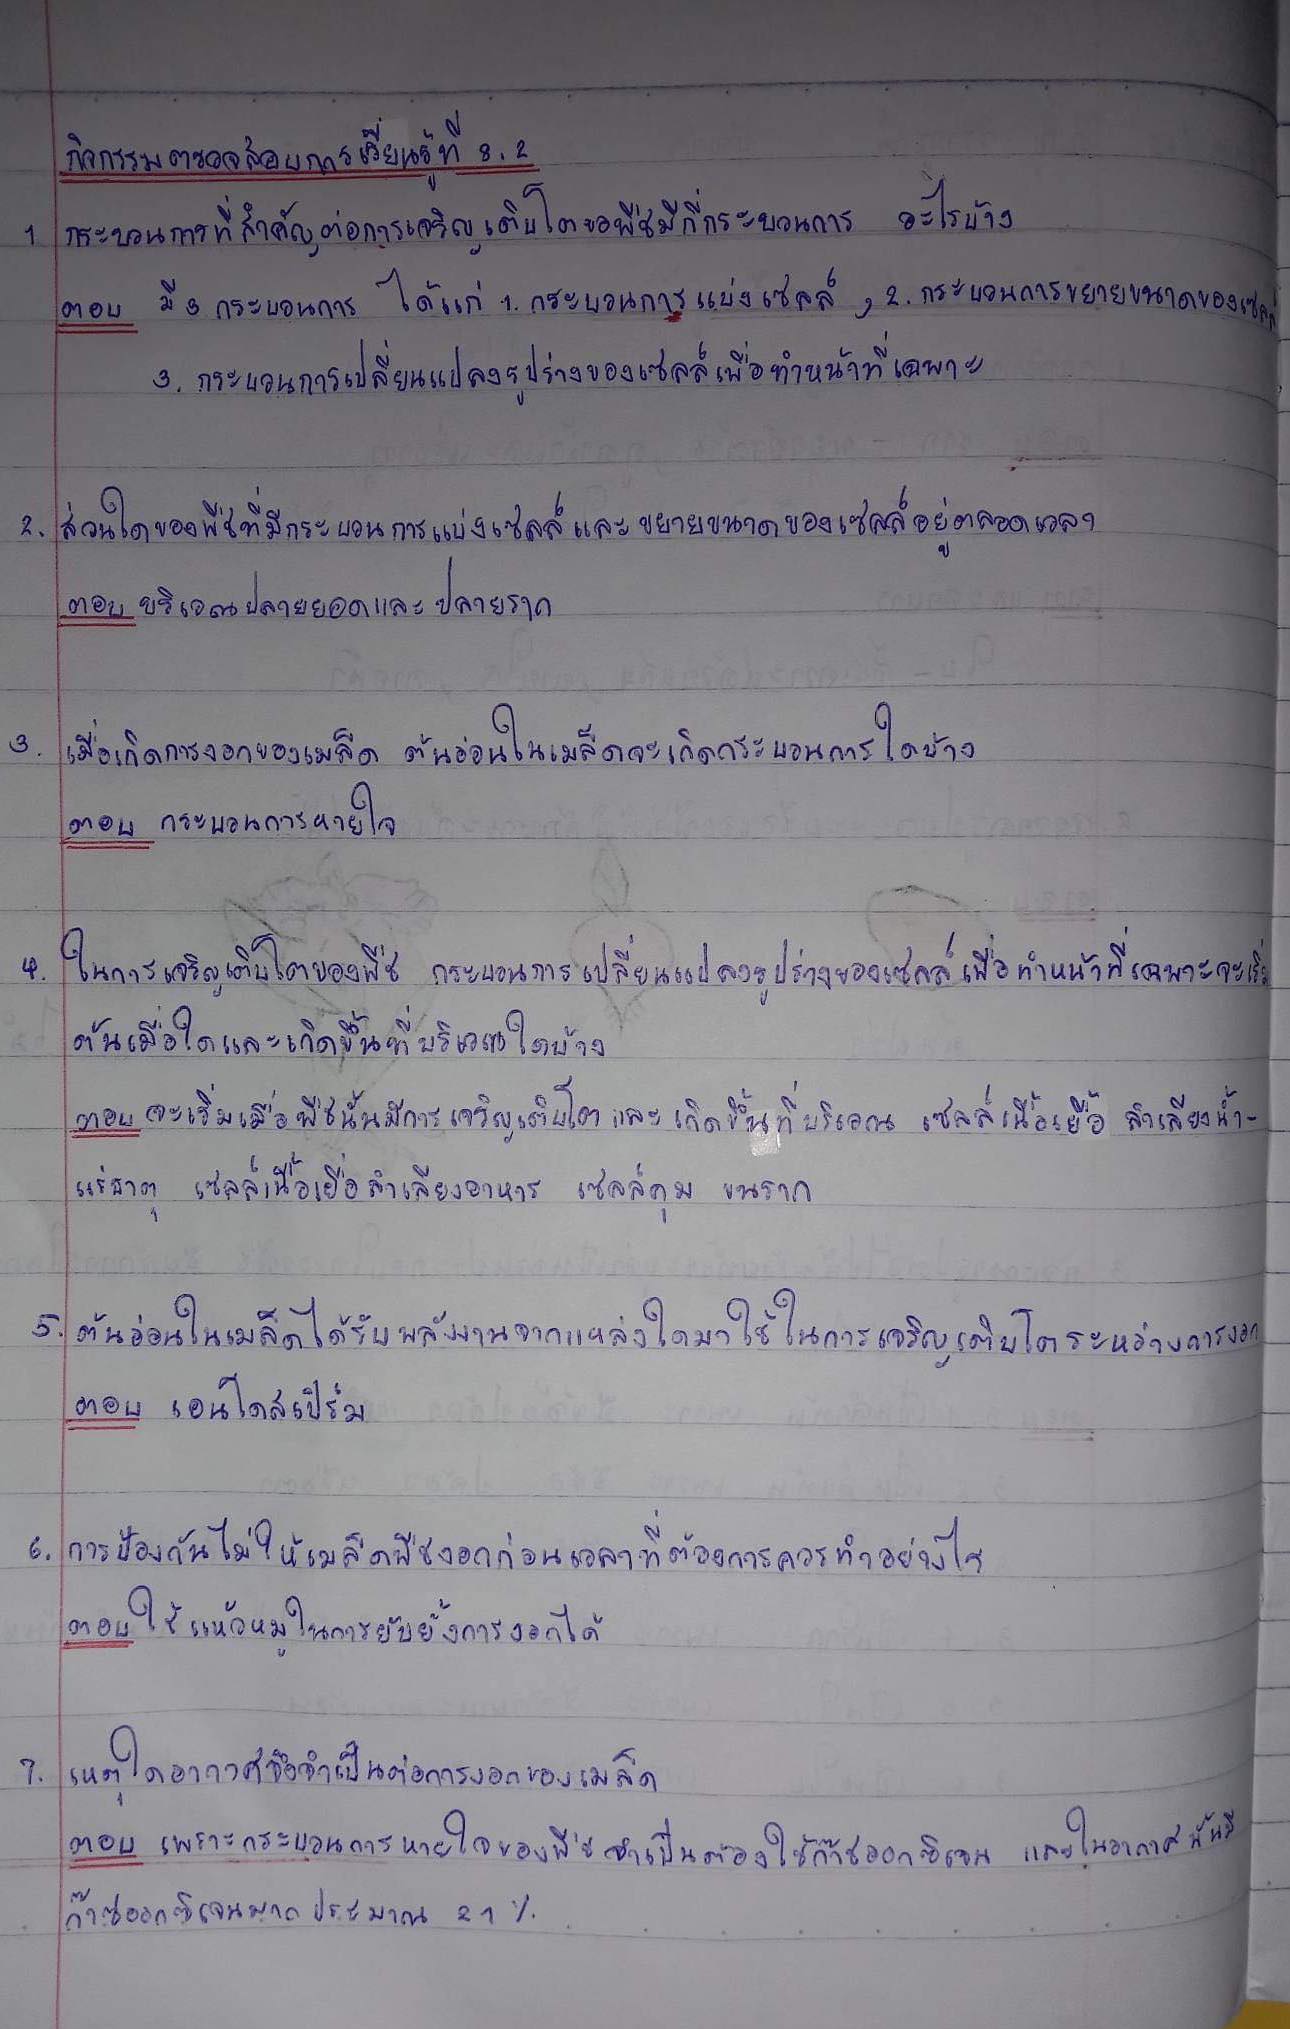 กิจกรรมตรวจสอบการเรียนรู้ที่ 8.2
1 กระบวนการที่สำคัญต่อการเจริญเติบโตของพืชมีกี่กระบวนการ อะไรบ้าง
ตอบ มี 3 กระบวนการ ได้แก่ 1. กระบวนการแบ่งเซลล์ , 2. กระบวนการขยายขนาดของเซลล์
3. กระบวนการเปลี่ยนแปลงรูปร่างของเซลล์เพื่อทำหน้าที่เฉพาะ
2. ส่วนใดของพืชที่มีกระบวนการแบ่งเซลล์และขยายขนาดของเซลล์อยู่ตลอดเวลา
ตอบ บริเวณปลายยอดและปลายราก
3. เมื่อเกิดการงอกของเมล็ด ต้นอ่อนในเมล็ดจะเกิดกระบวนการใดบ้าง
ตอบ กระบวนการหายใจ
4. ในการเจริญเติบโตของพืช กระบวนการเปลี่ยนแปลงรูปร่างของเซลล์เพื่อทำหน้าที่เฉพาะจะเริ่ม
ต้นเมื่อใดและเกิดขึ้นที่บริเวณใดบ้าง
ตอบ จะเริ่มเมื่อพืชนั้นมีการเจริญเติบโต และเกิดขึ้นที่บริเวณ เซลล์เนื้อเยื่อ ลำเลียงน้ำ-
แร่ธาตุ เซลล์เนื้อเยื่อลำเลียงอาหาร เซลล์คุม ขนราก
5. ต้นอ่อนในเมล็ดได้รับพลังงานจากแหล่งใดมาใช้ในการเจริญเติบโตระหว่างการงอก
ตอบ เอนโดสเปิร์ม
6. การป้องกันไม่ให้เมล็ดพืชงอกก่อนเวลาที่ต้องการควรทำอย่างไร
ตอบ ใช้แห้วหมูในการยับยั้งการงอกได้
7. เหตุใดอากาศจึงจำเป็นต่อการงอกของเมล็ด
ตอบ เพราะกระบวนการหายใจของพืชจำเป็นต้องใช้ก๊าซออกซิเจน และในอากาศนั้นมี
ก๊าซออกซิเจนมากประมาณ 21 %.